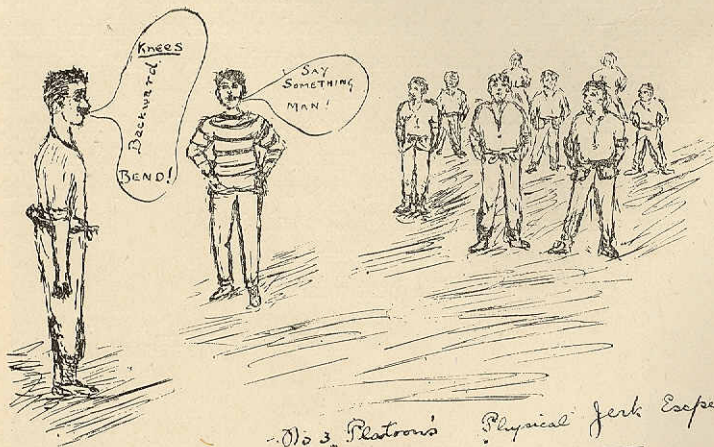 Knees
Backward
BEND!
SAY
SOMETHING
MAN!
No 3. Platoon's Physical Jerk